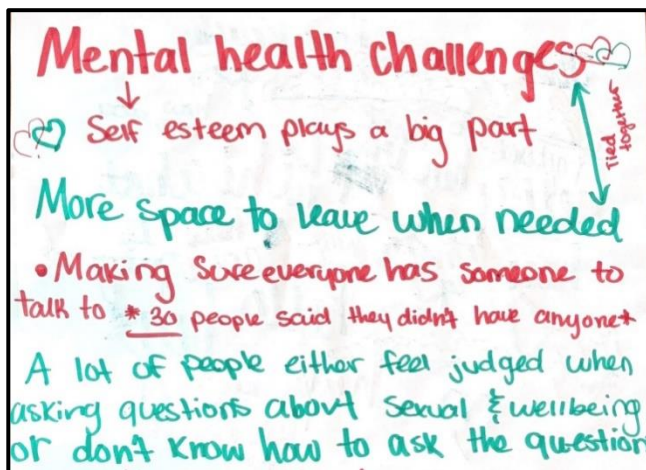 Mental health challenges
Self esteem plays a big part
Tied together
More space to leave when needed
• Making sure everyone has someone to
talk to * 30 people said they didn't have anyone*
A lot of people either feel judged when
asking questions about sexual & wellbeing
or don't know how to ask the question